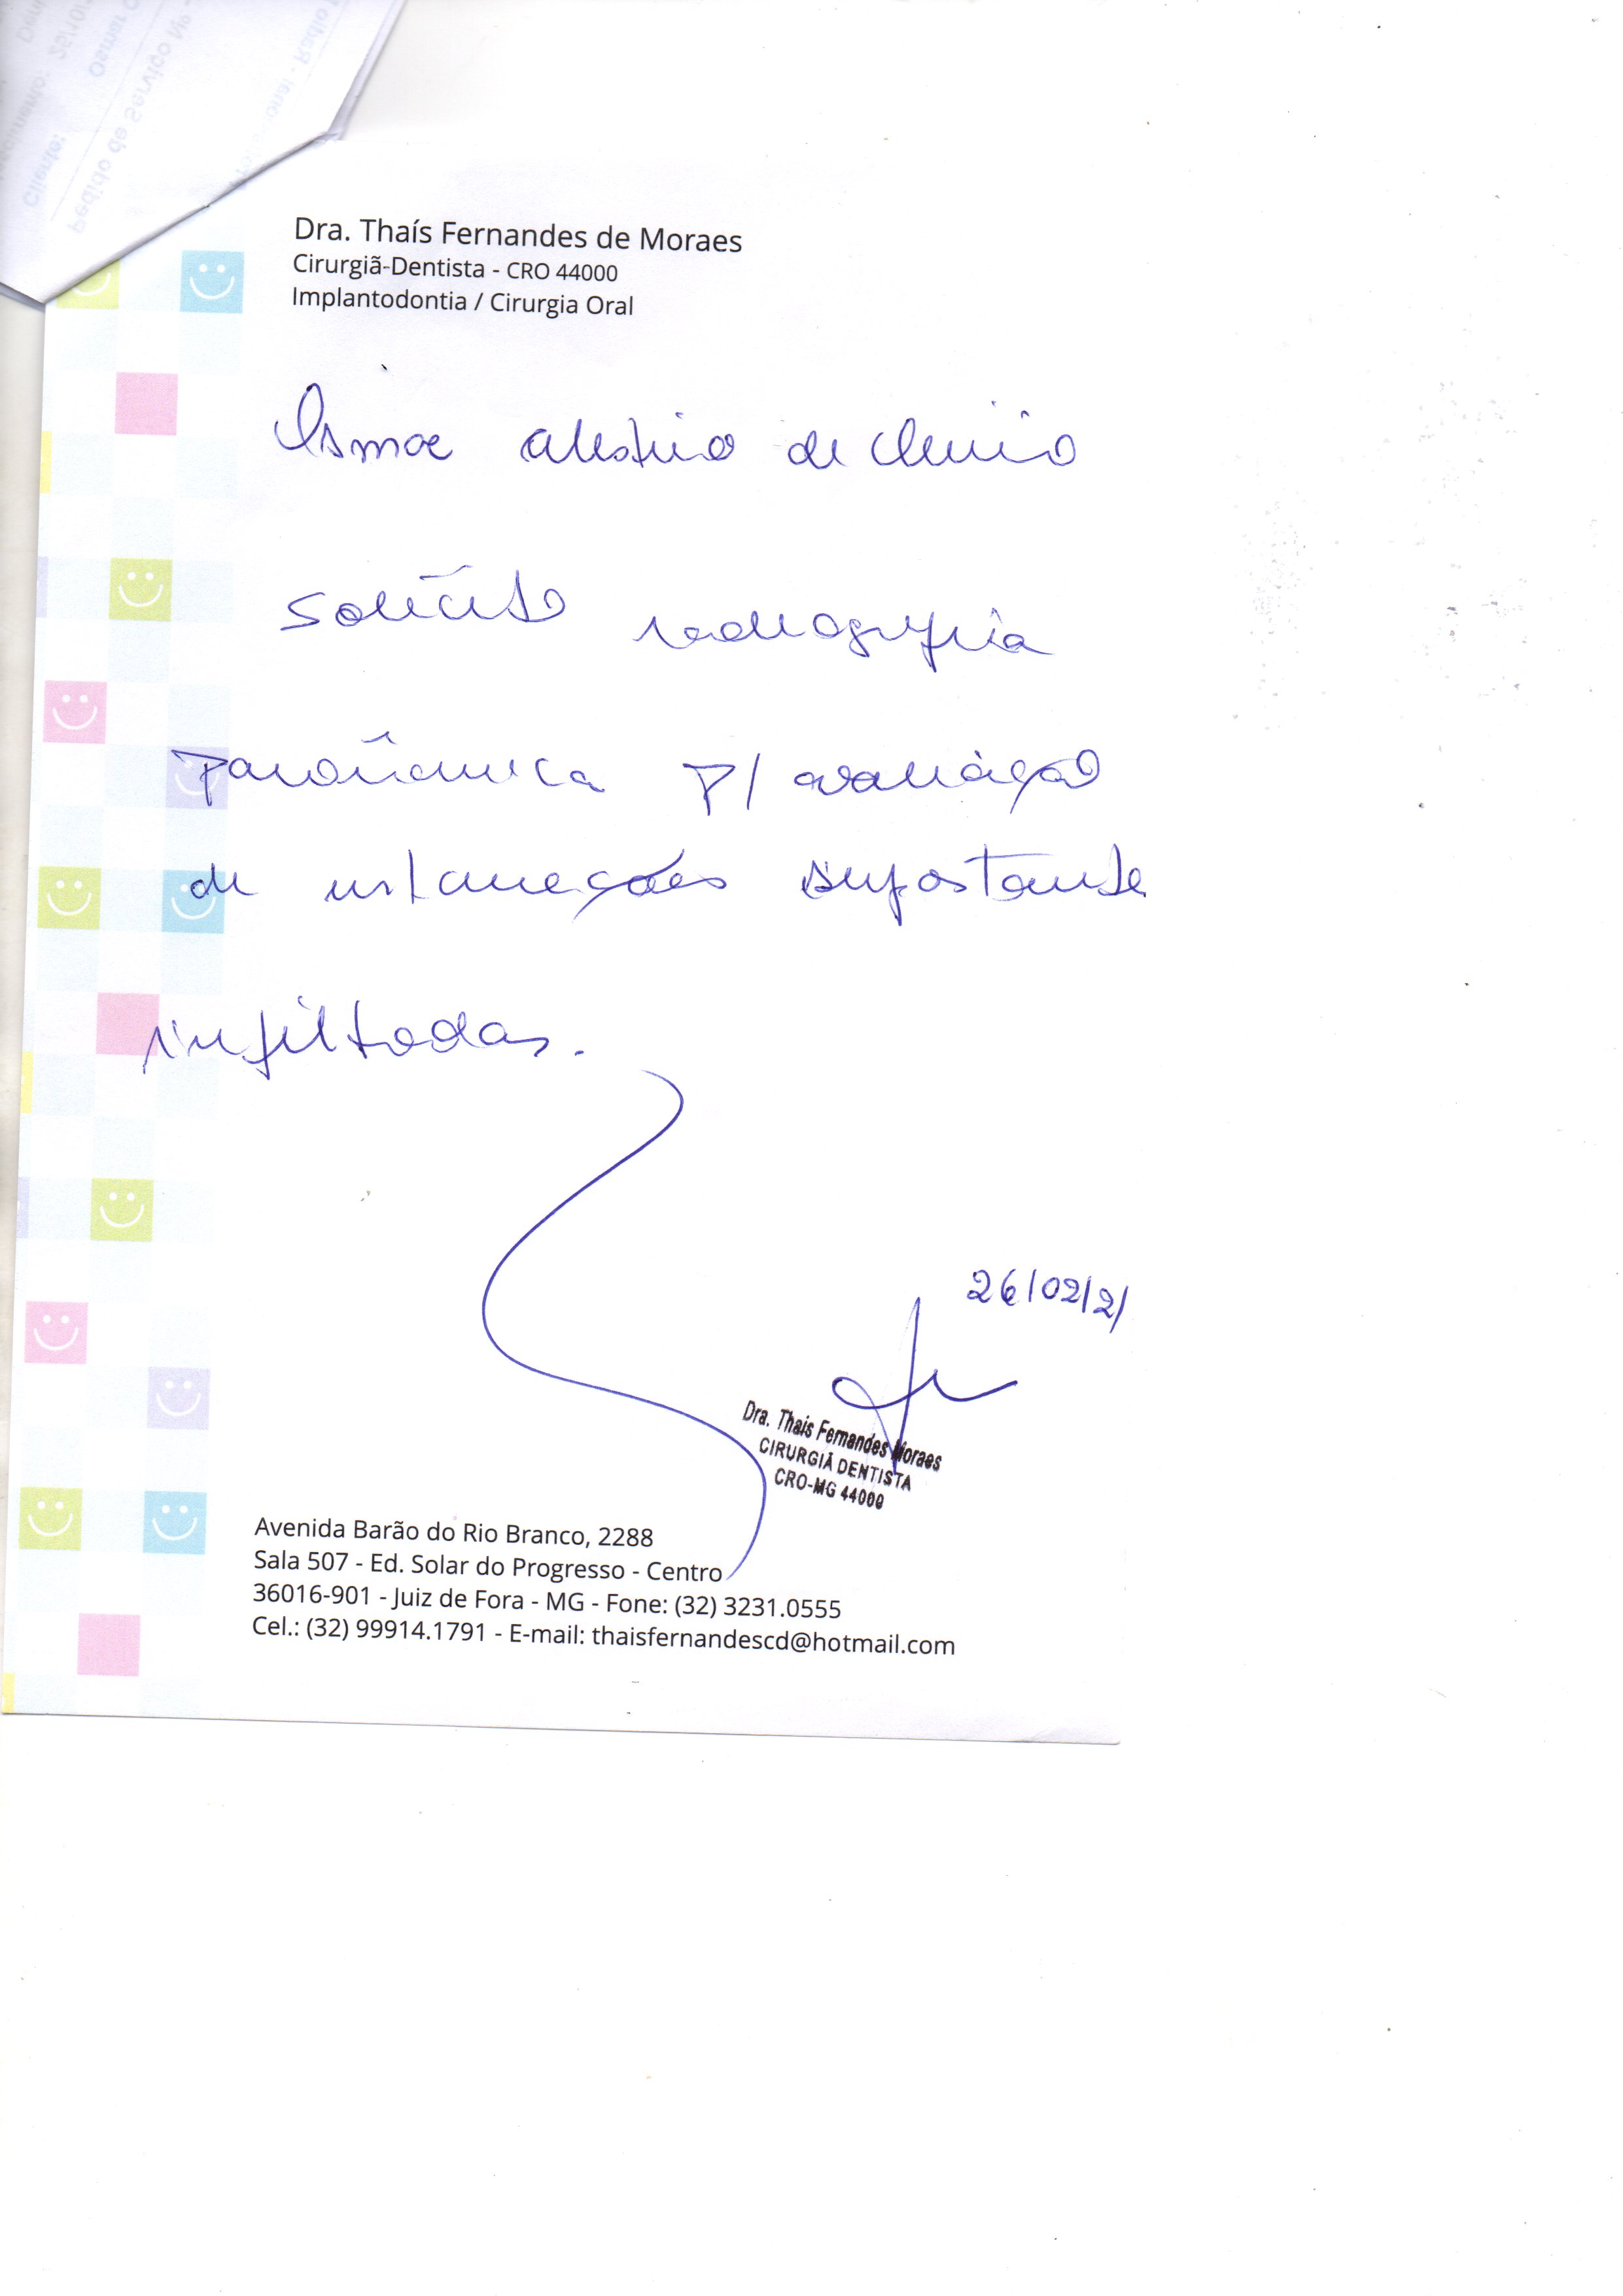 Cliente:
Osmar C
Pedido de Serviço Nº
Dra. Thaís Fernandes de Moraes
Cirurgiã-Dentista - CRO 44000
Implantodontia / Cirurgia Oral
Osmar de
Solicito radiografia
panorâmica p/ avaliação
de restaurações
infiltradas.
26/02/21
Dra. Thais Fernandes Moraes
CIRURGIÃ DENTISTA
CRO-MG 44000
Avenida Barão do Rio Branco, 2288
Sala 507 - Ed. Solar do Progresso - Centro
36016-901 - Juiz de Fora - MG - Fone: (32) 3231.0555
Cel.: (32) 99914.1791 - E-mail: thaisfernandescd@hotmail.com